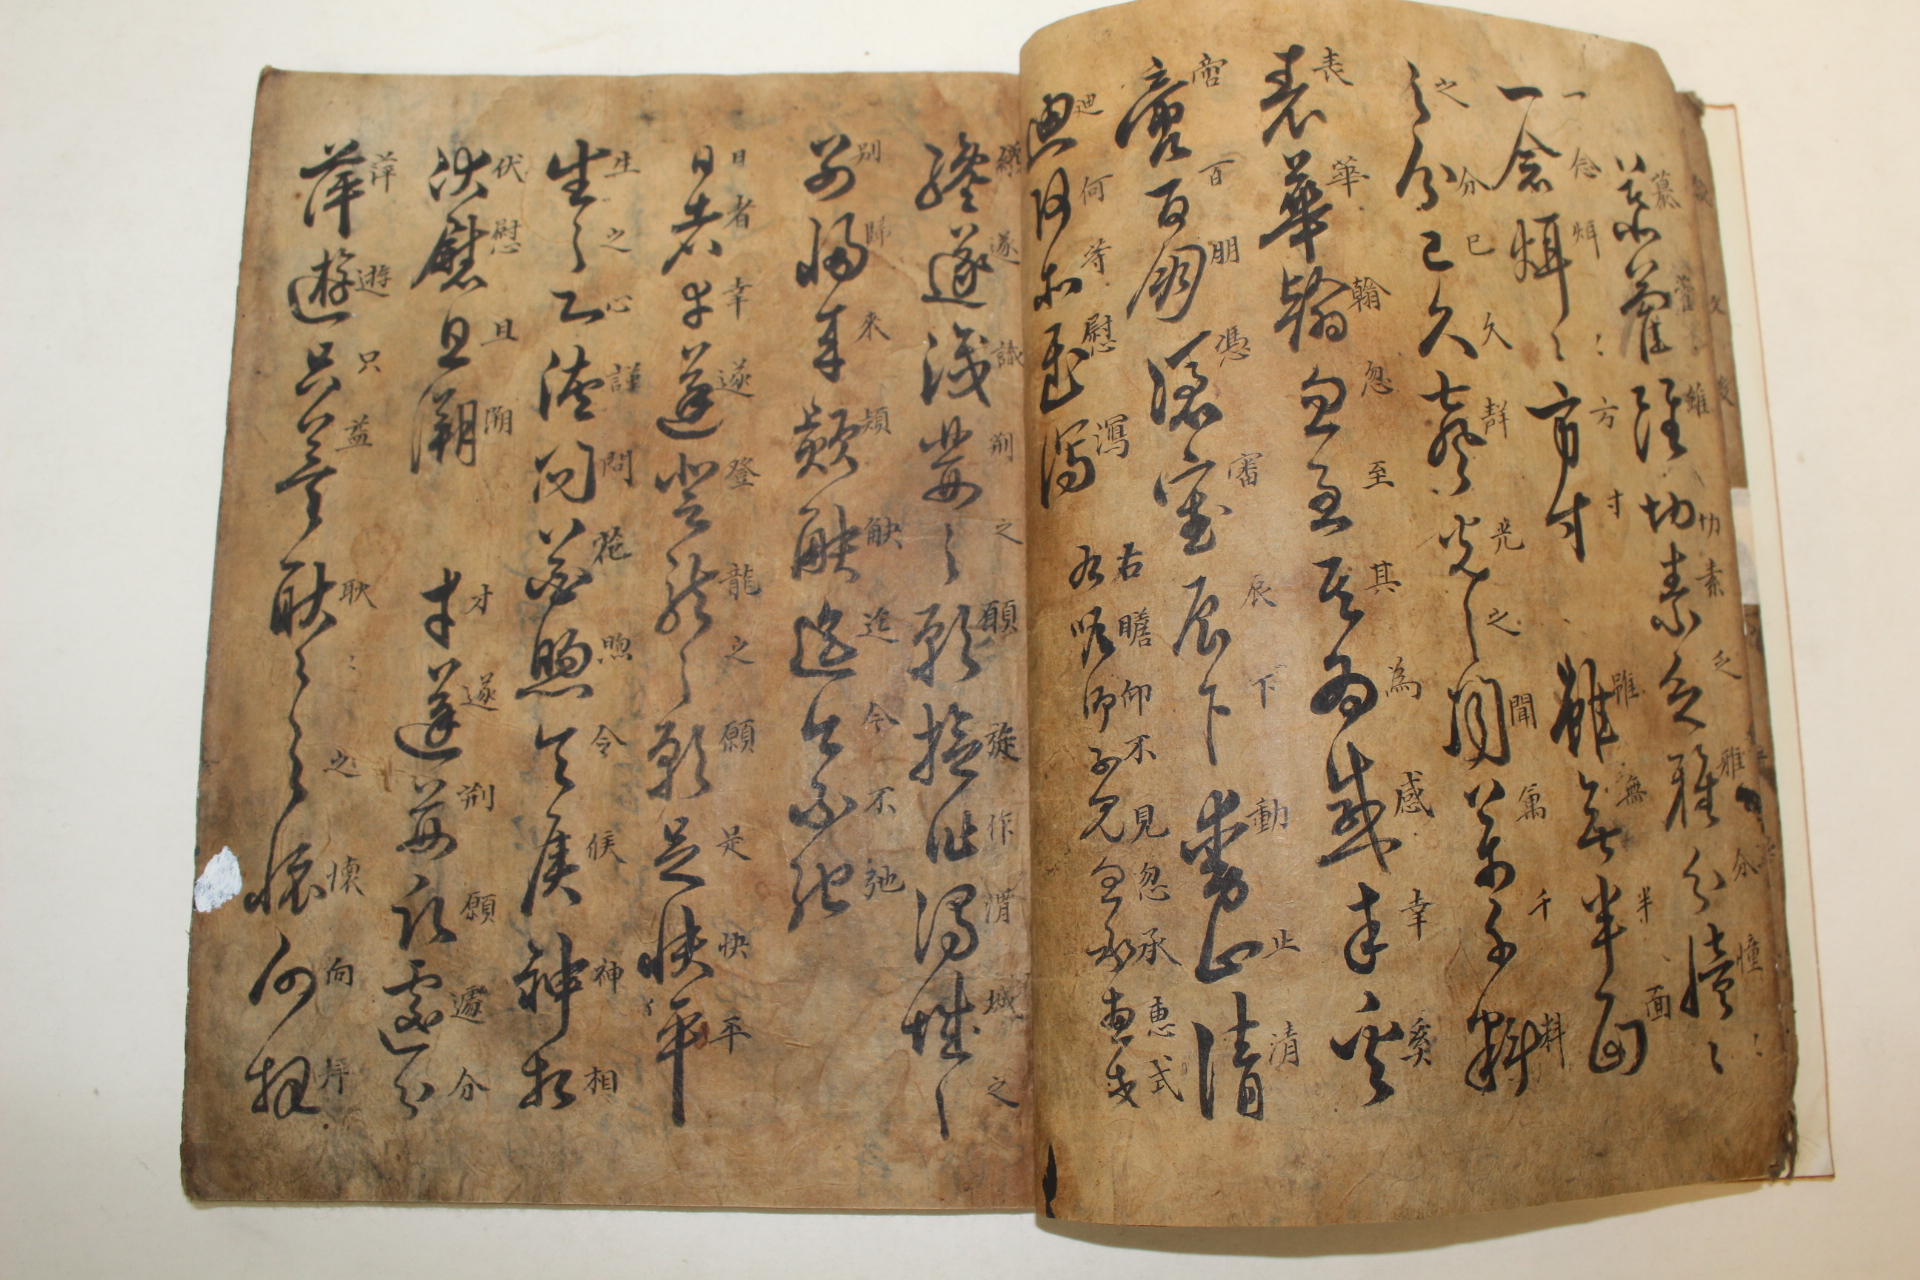 慕藿雖切素乏雅分憧〻
一念炯〻方寸雖無半面
之分已久聲光之聞篤千料
表華翰忽至其為感幸奚
啻百朋憑審辰下動止清
迪何等慰瀉右瞻仰不見忽承惠式
遂識荊之願旋作渭城之
別歸來頻觖迄今不弛
日者幸遂登龍之願是快平
生之心謹問苑煦令候神相
伏慰且溯才遂荊願遽分
萍遊只益耿〻之懷向坪